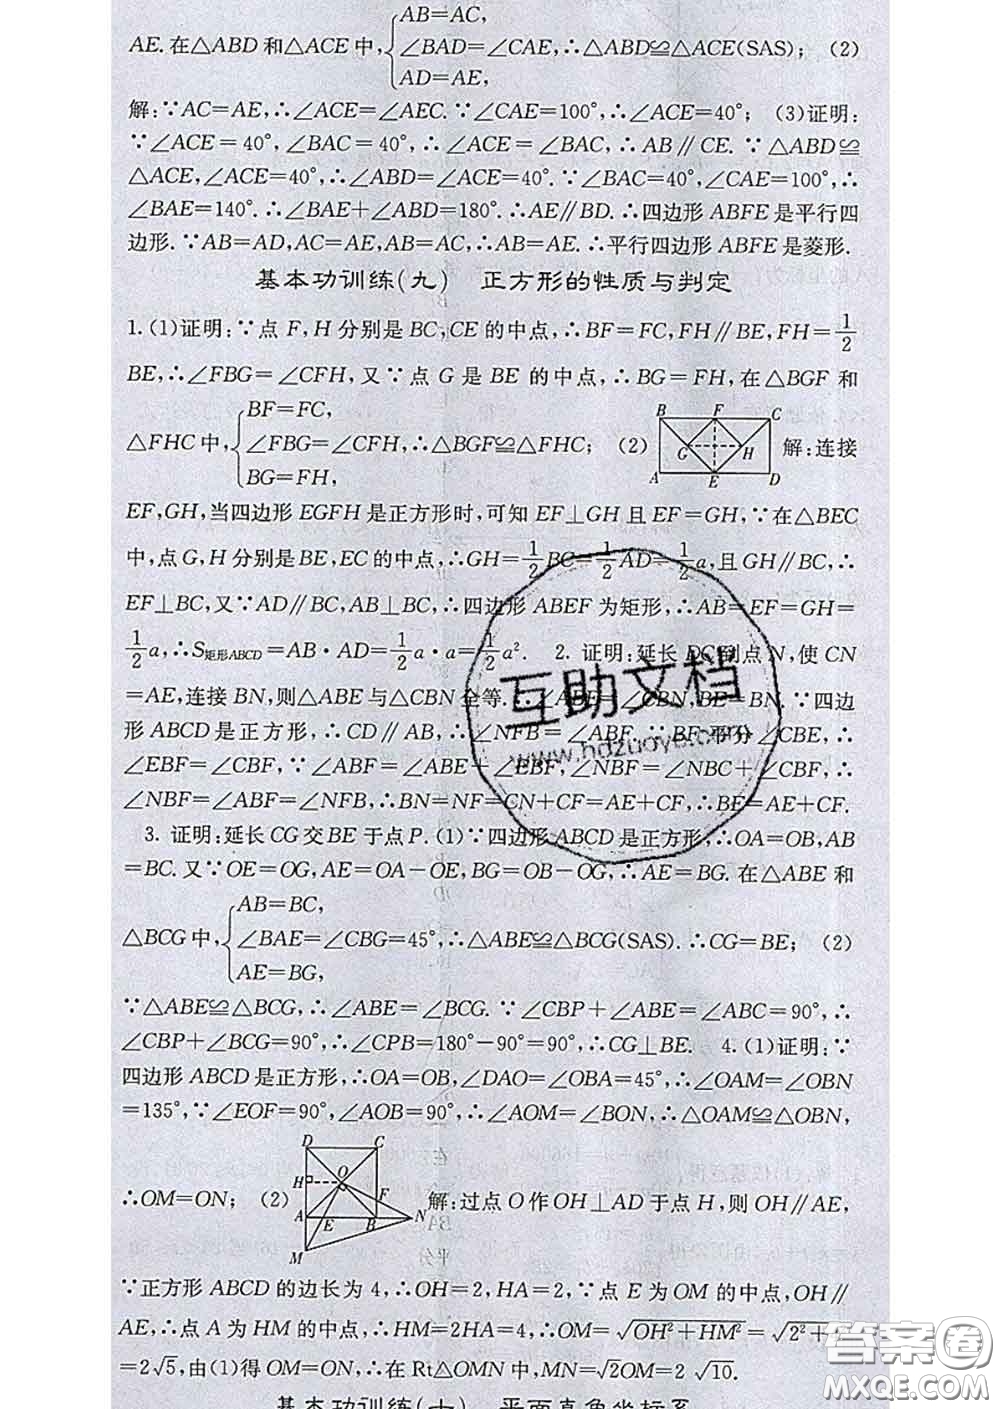 AB=AC,
AE.在△ABD和△ACE中,{∠BAD=∠CAE,∴△ABD≌△ACE(SAS); (2)
AD=AE,
解:∵AC=AE,∴∠ACE=∠AEC.∵∠CAE=100°,∴∠ACE=40°; (3)证明:
∵∠ACE=40°,∠BAC=40°,∴∠ACE=∠BAC,∴AB∥CE.∵△ABD≌
△ACE,∠ACE=40°,∴∠ABD=∠ACE=40°.∵∠BAC=40°,∠CAE=100°,∴
∠BAE=140°.∴∠BAE+∠ABD=180°.∴AE∥BD.∴四边形ABFE是平行四
边形.∵AB=AD,AC=AE,AB=AC,∴AB=AE.∴平行四边形ABFE是菱形.
基本功训练(九) 正方形的性质与判定
1.(1)证明:∵点F,H分别是BC,CE的中点,∴BF=FC,FH∥BE,FH=1/2
BE,∴∠FBG=∠CFH,又∵点G是BE的中点,∴BG=FH,在△BGF和
BF=FC,
△FHC中,{∠FBG=∠CFH,∴△BGF≌△FHC; (2) B F C G H A E D 解:连接
BG=FH,
EF,GH,当四边形EGFH是正方形时,可知EF⊥GH且EF=GH,∵在△BEC
中,点G,H分别是BE,EC的中点,∴GH=1/2BC=1/2AD=1/2a,且GH∥BC,∴
EF⊥BC,又∵AD∥BC,AB⊥BC,∴四边形ABEF为矩形,∴AB=EF=GH=
1/2a,∴S矩形ABCD=AB·AD=1/2a·a=1/2a². 2. 证明:延长DC到点N,使CN
=AE,连接BN,则△ABE与△CBN全等.∴∠ABE=∠CBN,BE=BN.∵四边
形ABCD是正方形,∴CD∥AB,∴∠NFB=∠ABF.∵BF平分∠CBE,∴
∠EBF=∠CBF,∵∠ABF=∠ABE+∠EBF,∠NBF=∠NBC+∠CBF,∴
∠NBF=∠ABF=∠NFB,∴BN=NF=CN+CF=AE+CF,∴BE=AE+CF.
3. 证明:延长CG交BE于点P.(1)∵四边形ABCD是正方形,∴OA=OB,AB
=BC.又∵OE=OG,AE=OA-OE,BG=OB-OG,∴AE=BG.在△ABE和
AB=BC,
△BCG中,{∠BAE=∠CBG=45°,∴△ABE≌△BCG(SAS).∴CG=BE; (2)
AE=BG,
∵△ABE≌△BCG,∴∠ABE=∠BCG.∵∠CBP+∠ABE=∠ABC=90°,∴
∠CBP+∠BCG=90°,∴∠CPB=180°-90°=90°,∴CG⊥BE. 4.(1)证明:∵
四边形ABCD是正方形,∴OA=OB,∠DAO=∠OBA=45°,∴∠OAM=∠OBN
=135°,∵∠EOF=90°,∠AOB=90°,∴∠AOM=∠BON,∴△OAM≌△OBN,
∴OM=ON; (2) D C H O F A E B N M 解:过点O作OH⊥AD于点H,则OH∥AE,
∵正方形ABCD的边长为4,∴OH=2,HA=2,∵点E为OM的中点,OH∥
AE,∴点A为HM的中点,∴HM=2HA=4,∴OM=√(OH²+HM²)=√(2²+
=2√5,由(1)得OM=ON,∴在Rt△OMN中,MN=√2OM=2√10.
基本功训练(十) 平面直角坐标系
互助文档
www.hdzuoye.com
答案圈
MXQE.COM